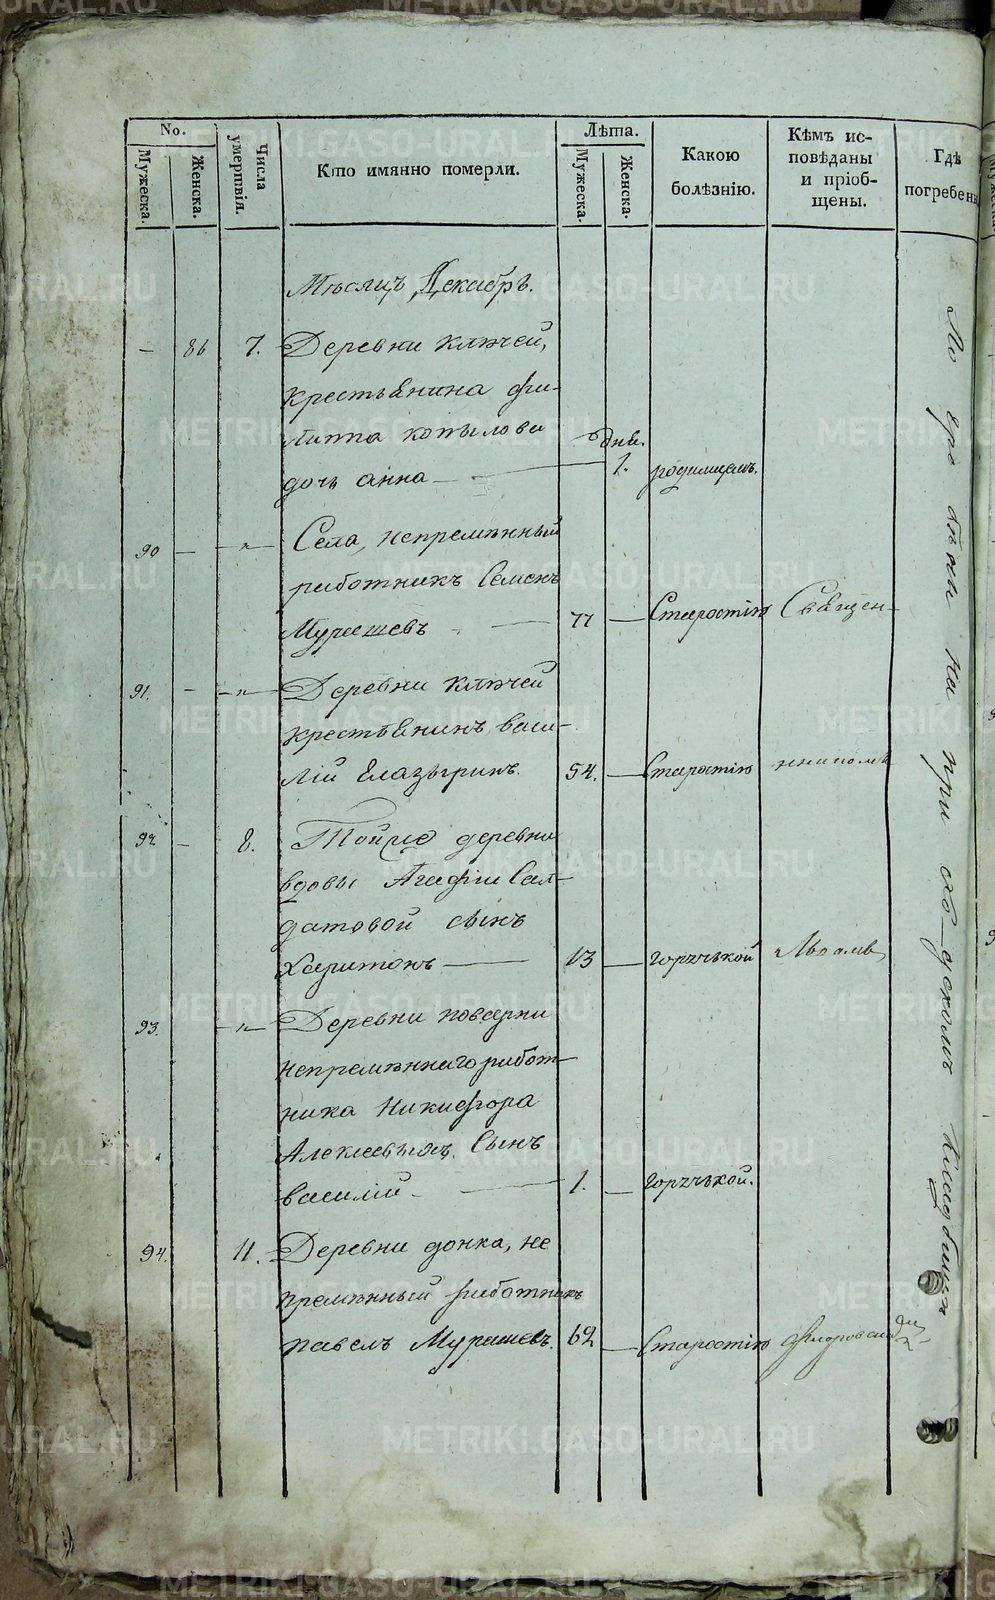 No.
Мужеска.
Женска.
Числа умертвія.
Кто имянно померли.
Лѣта.
Мужеска.
Женска.
Какою болѣзнію.
Кѣмъ ис-
повѣданы
и пріоб-
щены.
Гдѣ
погребен
Мѣсяцъ Декабрь.
— 86 7. Деревни Ключей,
крестьянина Фи-
липпа Копылова дня.
дочь Анна — 1. родимцемъ.
90 — „ Села, непремѣнный
работникъ Семенъ
Мурашевъ — 77 — Старостію Священ-
91. — „ Деревни Ключей
крестьянинъ Васи-
лій Елазыринъ. 54. — Старостію никомъ
92 — 8. Тойже деревни
вдовы Агафіи Сал-
датовой сынъ
Харитонъ — 13 — горячкой Львомъ
93. „ Деревни Поварни
непремѣннаго работ-
ника Никифора
Алексѣева Сынъ
Василій — 1. — горячкой.
94. 11. Деревни Донка, не
премѣнный работникъ
Павелъ Мурашевъ. 62 — Старостію Флоровски
на при-
скомъ кладбищѣ
METRIKI.GASO-URAL.RU